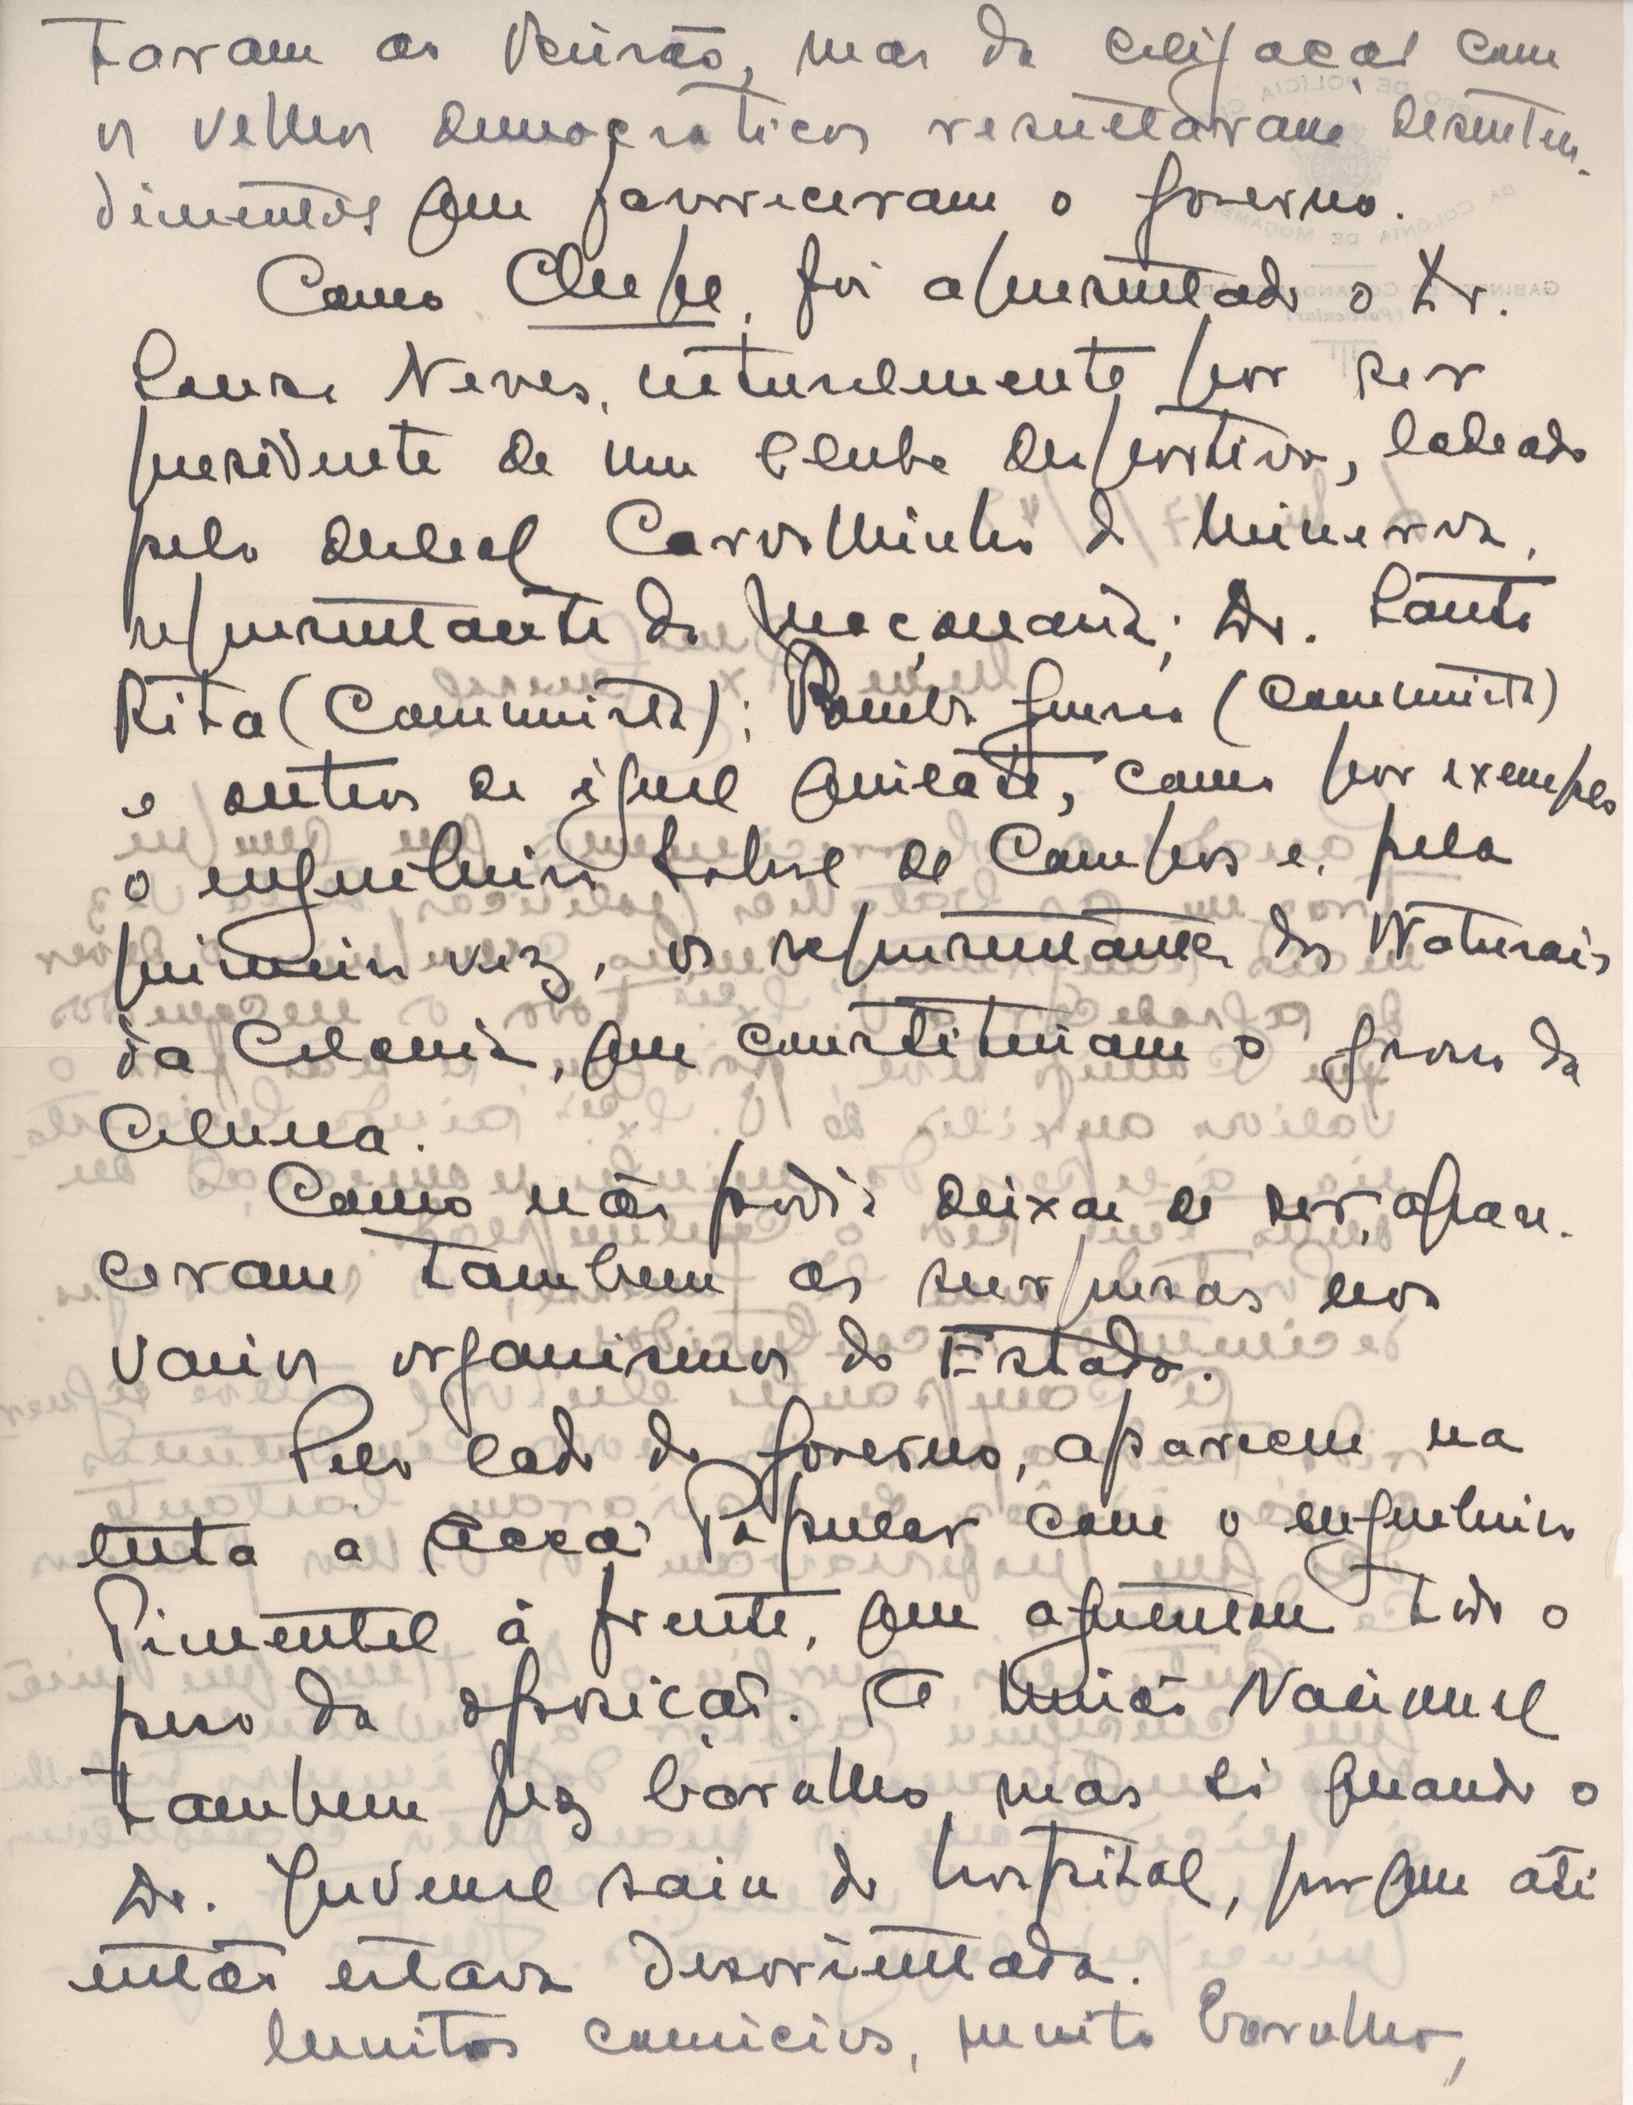 taram as reunião, mas da coligação com
os velhos democraticos resultaram desenten-
dimentos que favoreceram o governo.
Como Chefe, foi apresentado o Dr.
Sousa Neves, naturalmente por ser
presidente de um Clube desportivo, ladeado
pelo Carvalhinho da Minerva,
representante da Maçonaria; Dr. Santa
Rita (Communista); Pomba Guerra (Communista)
e outros de igual quilate, como por exemplo
o engenheiro Sobral de Campos e, pela
primeira vez, os representantes dos Naturais
da Colonia, que constituiam o grosso da
Coluna.
Como não podia deixar de ser, apare-
ceram tambem as surpresas nos
varios organismos do Estado.
Pelo lado do Governo, aparecem na
luta a Acção Popular com o engenheiro
Pimentel à frente, que aguentou todo o
peso da oposição. A União Nacional
tambem fez barulho, mas só quando o
Dr. Juvenal saiu do hospital, porque até
então estava desorientada.
Muitos comicios, muito barulho,
DE POLÍCIA
DA COLÓNIA DE MOÇAMBIQUE
GABINETE DO COMANDO
(Particular)